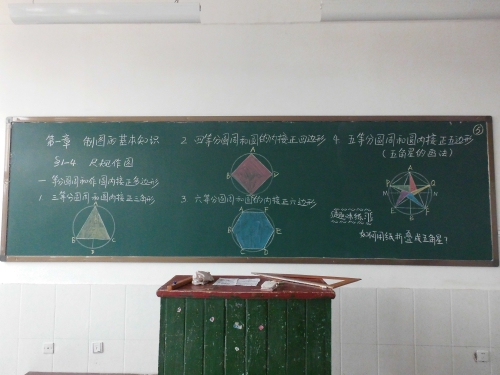 第一章 制图的基本知识
§1-4 尺规作图
一 等分圆周和作圆内接正多边形
1. 三等分圆周和圆内接正三角形
A
B
L
D
2. 四等分圆周和圆的内接正四边形
A
B
3. 六等分圆周和圆的内接正六边形
A
B
F
C
D
E
4. 五等分圆周和圆内接正五边形
(五角星的画法)
A
P
B
N
M
G
F
课堂练习
如何用纸折叠成五角星?
⑤